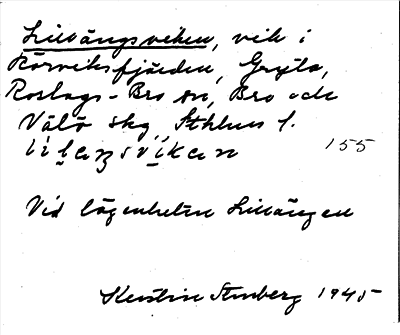 Lillängsviken, vik i
Rörviksfjärden, Gryta,
Roslags-Bro sn, Bro och
Väto skg, Sthlms l.
155
Vid lägenheten Lillängen
Kerstin Stenberg 1945